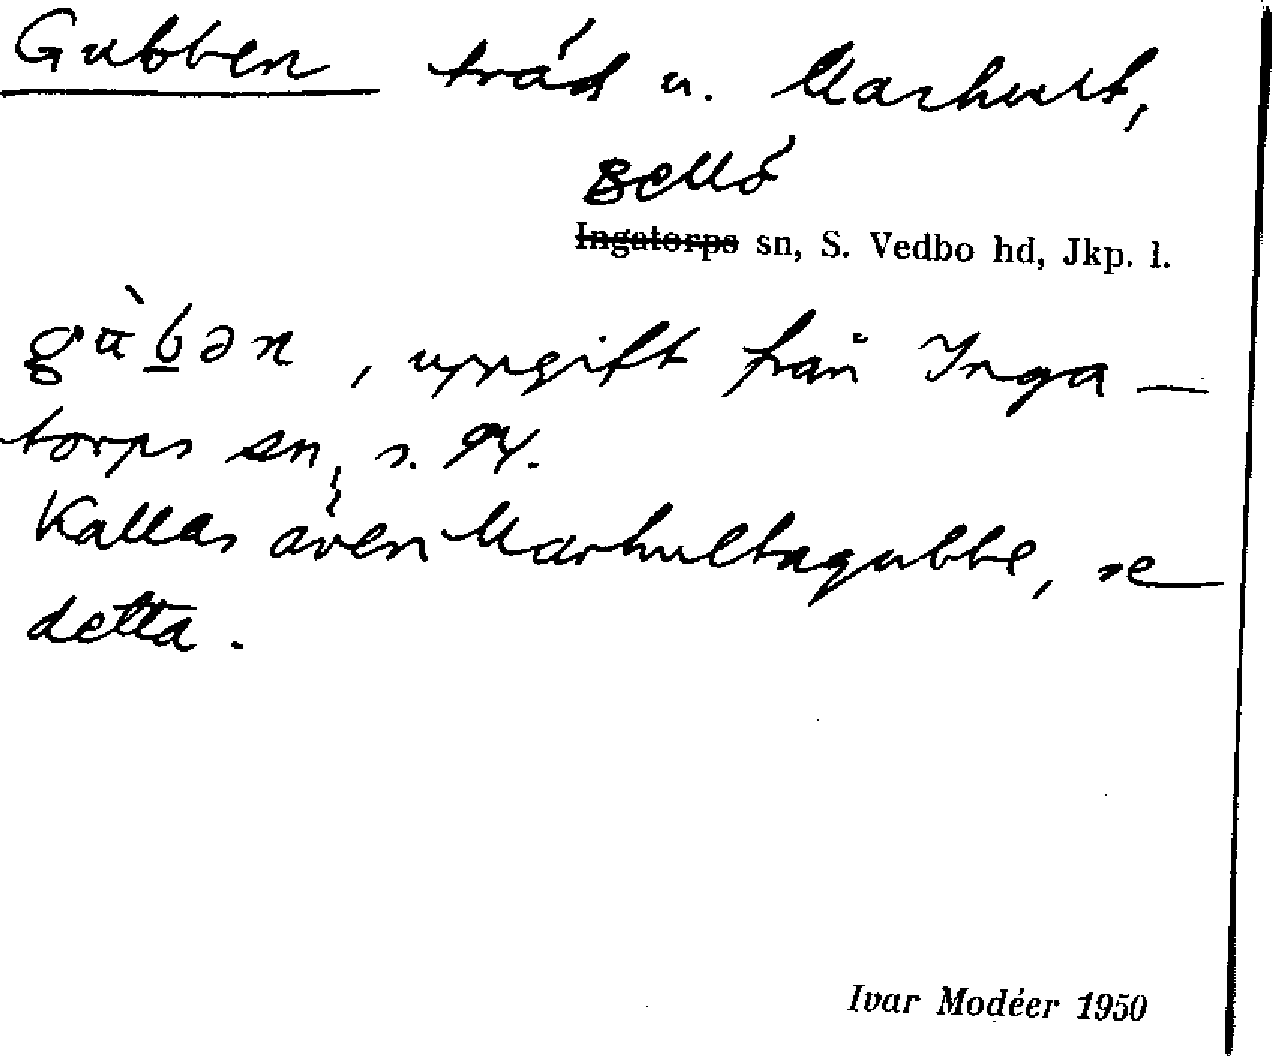 Gubben träd u. Marhult,
Bellö
Ingatorps sn, S. Vedbo hd, Jkp. l.
gu̇̀bən, uppgift från Inga-
torps sn, s. 94.
Kallas även Marhultsgubbe, se
detta.
Ivar Modéer 1950